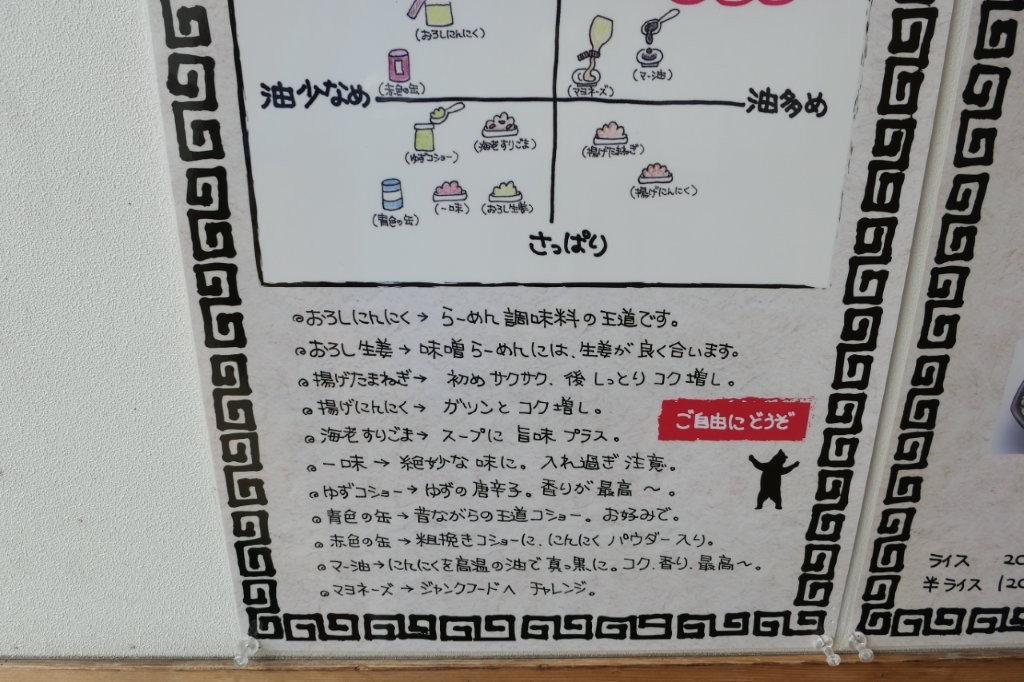 (おろしにんにく)
(赤色の缶)
(マヨネーズ)
(マー油)
油少なめ
油多め
(ゆずコショー)
(海老すりごま)
(揚げたまねぎ)
(揚げにんにく)
(青色の缶)
(一味)
(おろし生姜)
さっぱり
おろしにんにく→ らーめん調味料の王道です。
おろし生姜→味噌らーめんには、生姜が良く合います。
揚げたまねぎ→ 初めサクサク、後しっとりコク増し。
揚げにんにく→ ガツンとコク増し。
ご自由にどうぞ
海老すりごま→ スープに旨味プラス。
一味→絶妙な味に。入れ過ぎ注意。
ゆずコショー→ゆずの唐辛子。香りが最高〜。
青色の缶→昔ながらの王道コショー。お好みで。
赤色の缶→粗挽きコショーに、にんにくパウダー入り。
マー油→にんにくを高温の油で真っ黒に。コク、香り、最高〜。
マヨネーズ→ジャンクフードへ チャレンジ。
ライス 20
半ライス 120